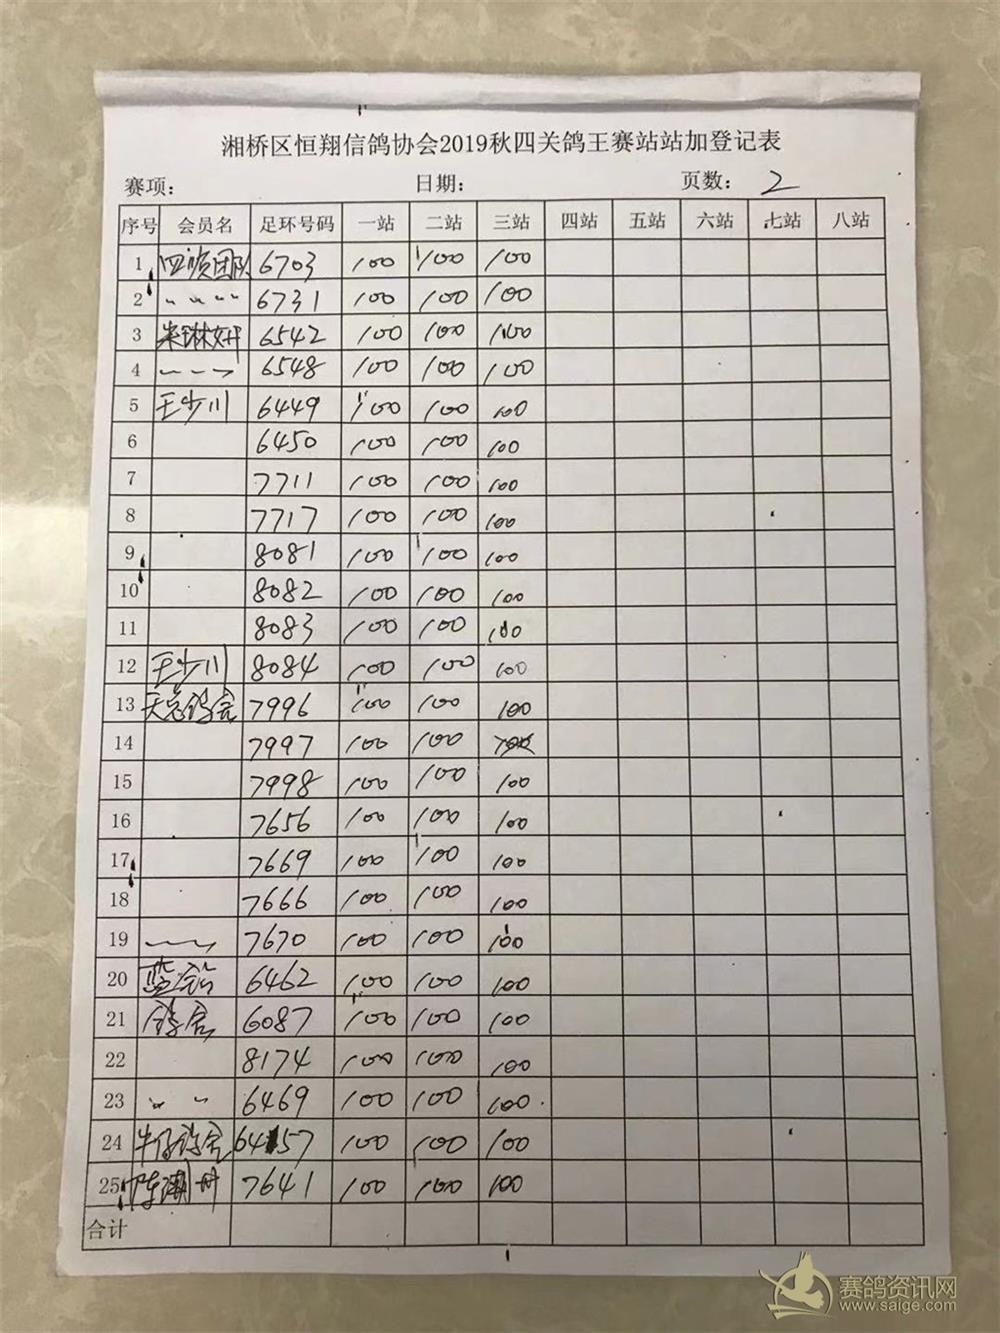 湘桥区恒翔信鸽协会2019秋四关鸽王赛站站加登记表
赛项: 日期: 页数: 2
序号 会员名 足环号码 一站 二站 三站 四站 五站 六站 七站 八站
1 团队 6703 100 100 100
2 〃 〃 〃 〃 6731 100 100 100
3 6542 100 100 100
4 6548 100 100 100
5 王少川 6449 100 100 100
6 6450 100 100 100
7 7711 100 100 100
8 7717 100 100 100
9 8081 100 100 100
10 8082 100 100 100
11 8083 100 100 100
12 王少川 8084 100 100 100
13 鸽舍 7996 100 100 100
14 7997 100 100
15 7998 100 100 100
16 7656 100 100 100
17 7669 100 100 100
18 7666 100 100 100
19 7670 100 100 100
20 6462 100 100 100
21 鸽舍 6087 100 100 100
22 8174 100 100 100
23 〃 〃 6469 100 100 100
24 牛仔鸽舍 6457 100 100 100
25 7641 100 100 100
合计
赛鸽资讯网
www.saige.com